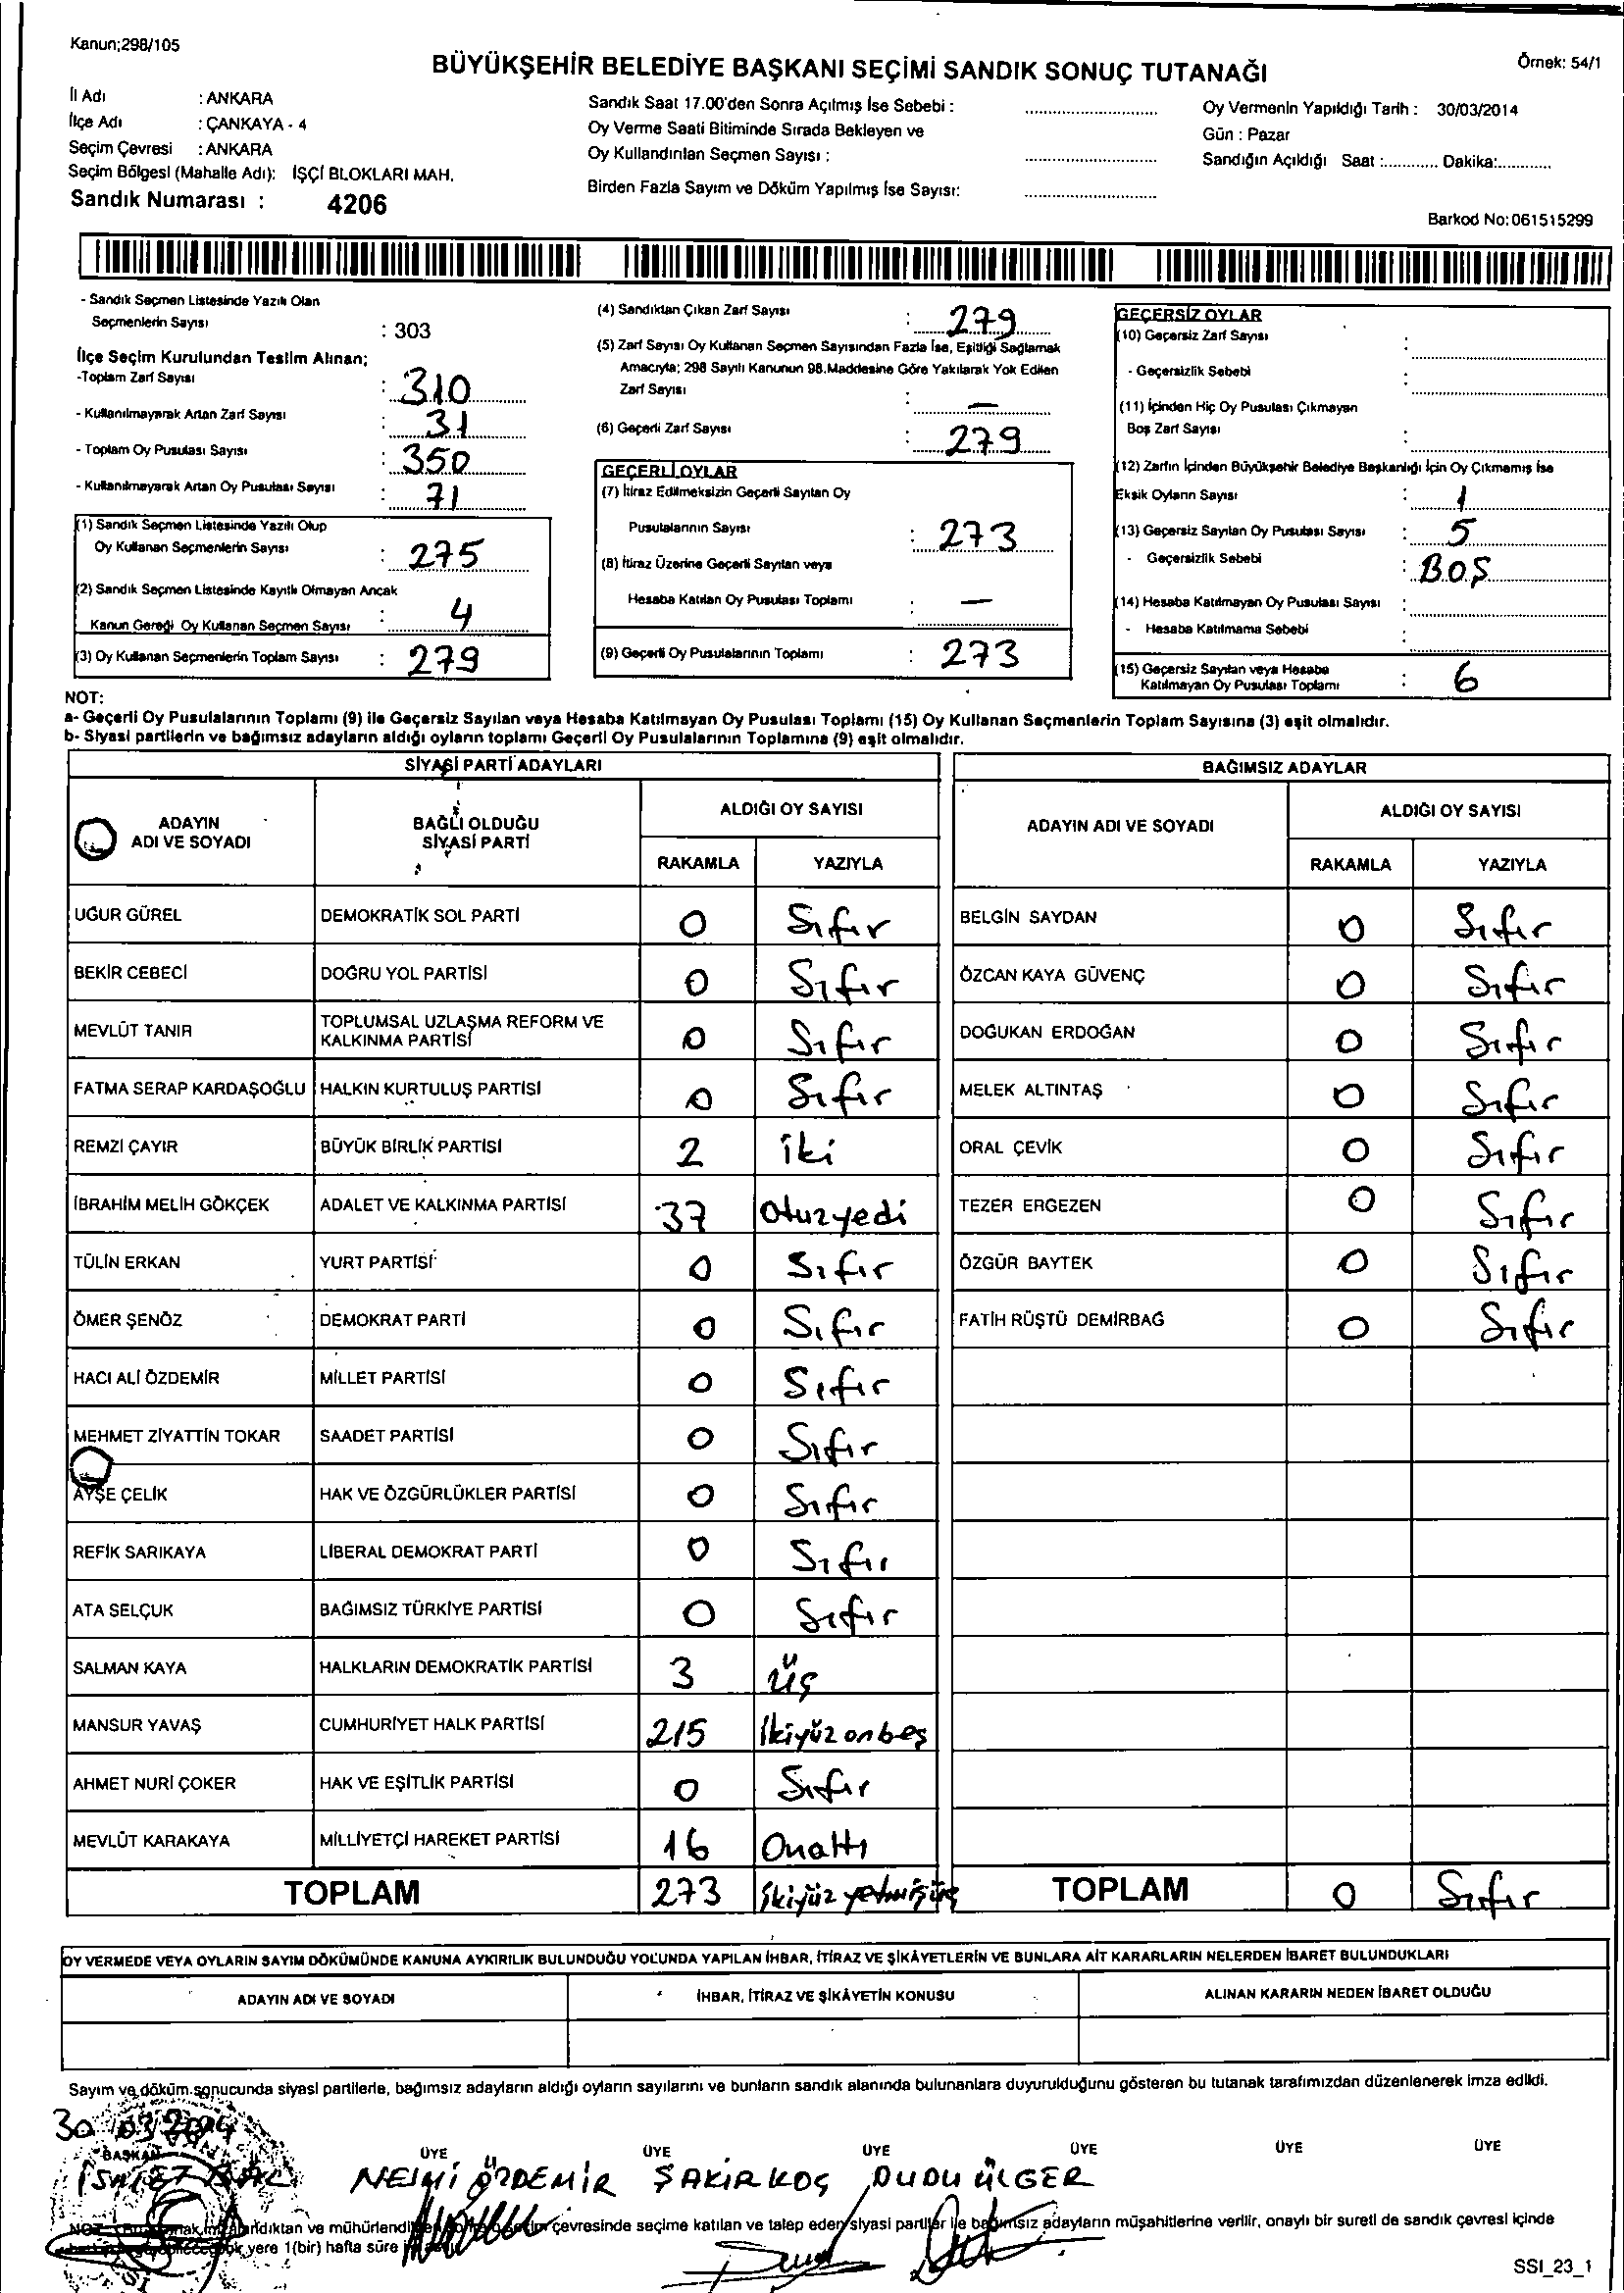 Kanun;298/105
BÜYÜKŞEHİR BELEDİYE BAŞKANI SEÇİMİ SANDIK SONUÇ TUTANAĞI
Örnek: 54/1
İl Adı : ANKARA
İlçe Adı : ÇANKAYA - 4
Seçim Çevresi : ANKARA
Seçim Bölgesi (Mahalle Adı): İŞÇİ BLOKLARI MAH.
Sandık Numarası : 4206
Sandık Saat 17.00'den Sonra Açılmış İse Sebebi :
Oy Verme Saati Bitiminde Sırada Bekleyen ve
Oy Kullandırılan Seçmen Sayısı :
Birden Fazla Sayım ve Döküm Yapılmış İse Sayısı:
Oy Vermenin Yapıldığı Tarih : 30/03/2014
Gün : Pazar
Sandığın Açıldığı Saat :............ Dakika:............
Barkod No:061515299
- Sandık Seçmen Listesinde Yazılı Olan
Seçmenlerin Sayısı : 303
İlçe Seçim Kurulundan Teslim Alınan;
-Toplam Zarf Sayısı : 310
- Kullanılmayarak Artan Zarf Sayısı : 31
- Toplam Oy Pusulası Sayısı : 350
- Kullanılmayarak Artan Oy Pusulası Sayısı : 71
(1) Sandık Seçmen Listesinde Yazılı Olup
Oy Kullanan Seçmenlerin Sayısı : 275
(2) Sandık Seçmen Listesinde Kayıtlı Olmayan Ancak
Kanun Gereği Oy Kullanan Seçmen Sayısı : 4
(3) Oy Kullanan Seçmenlerin Toplam Sayısı : 279
(4) Sandıktan Çıkan Zarf Sayısı : 279
(5) Zarf Sayısı Oy Kullanan Seçmen Sayısından Fazla İse, Eşitliği Sağlamak
Amacıyla; 298 Sayılı Kanunun 98.Maddesine Göre Yakılarak Yok Edilen
Zarf Sayısı : —
(6) Geçerli Zarf Sayısı : 279
GEÇERLİ OYLAR
(7) İtiraz Edilmeksizin Geçerli Sayılan Oy
Pusulalarının Sayısı : 273
(8) İtiraz Üzerine Geçerli Sayılan veya
Hesaba Katılan Oy Pusulası Toplamı : —
(9) Geçerli Oy Pusulalarının Toplamı : 273
GEÇERSİZ OYLAR
(10) Geçersiz Zarf Sayısı :
- Geçersizlik Sebebi :
(11) İçinden Hiç Oy Pusulası Çıkmayan
Boş Zarf Sayısı :
(12) Zarfın İçinden Büyükşehir Belediye Başkanlığı İçin Oy Çıkmamış İse
Eksik Oyların Sayısı : 1
(13) Geçersiz Sayılan Oy Pusulası Sayısı : 5
- Geçersizlik Sebebi : BOŞ
(14) Hesaba Katılmayan Oy Pusulası Sayısı :
- Hesaba Katılmama Sebebi :
(15) Geçersiz Sayılan veya Hesaba
Katılmayan Oy Pusulası Toplamı : 6
NOT:
a- Geçerli Oy Pusulalarının Toplamı (9) ile Geçersiz Sayılan veya Hesaba Katılmayan Oy Pusulası Toplamı (15) Oy Kullanan Seçmenlerin Toplam Sayısına (3) eşit olmalıdır.
b- Siyasi partilerin ve bağımsız adayların aldığı oyların toplamı Geçerli Oy Pusulalarının Toplamına (9) eşit olmalıdır.
SİYASİ PARTİ ADAYLARI
ADAYIN ADI VE SOYADI BAĞLI OLDUĞU SİYASİ PARTİ ALDIĞI OY SAYISI
RAKAMLA YAZIYLA
UĞUR GÜREL DEMOKRATİK SOL PARTİ 0 Sıfır
BEKİR CEBECİ DOĞRU YOL PARTİSİ 0 Sıfır
MEVLÜT TANIR TOPLUMSAL UZLAŞMA REFORM VE KALKINMA PARTİSİ 0 Sıfır
FATMA SERAP KARDAŞOĞLU HALKIN KURTULUŞ PARTİSİ 0 Sıfır
REMZİ ÇAYIR BÜYÜK BİRLİK PARTİSİ 2 iki
İBRAHİM MELİH GÖKÇEK ADALET VE KALKINMA PARTİSİ 37 Otuzyedi
TÜLİN ERKAN YURT PARTİSİ 0 Sıfır
ÖMER ŞENÖZ DEMOKRAT PARTİ 0 Sıfır
HACI ALİ ÖZDEMİR MİLLET PARTİSİ 0 Sıfır
MEHMET ZİYATTİN TOKAR SAADET PARTİSİ 0 Sıfır
AYŞE ÇELİK HAK VE ÖZGÜRLÜKLER PARTİSİ 0 Sıfır
REFİK SARIKAYA LİBERAL DEMOKRAT PARTİ 0 Sıfır
ATA SELÇUK BAĞIMSIZ TÜRKİYE PARTİSİ 0 Sıfır
SALMAN KAYA HALKLARIN DEMOKRATİK PARTİSİ 3 üç
MANSUR YAVAŞ CUMHURİYET HALK PARTİSİ 215 İkiyüz onbeş
AHMET NURİ ÇOKER HAK VE EŞİTLİK PARTİSİ 0 Sıfır
MEVLÜT KARAKAYA MİLLİYETÇİ HAREKET PARTİSİ 16 Onaltı
TOPLAM 273 İkiyüz yetmişüç
BAĞIMSIZ ADAYLAR
ADAYIN ADI VE SOYADI ALDIĞI OY SAYISI
RAKAMLA YAZIYLA
BELGİN SAYDAN 0 Sıfır
ÖZCAN KAYA GÜVENÇ 0 Sıfır
DOĞUKAN ERDOĞAN 0 Sıfır
MELEK ALTINTAŞ 0 Sıfır
ORAL ÇEVİK 0 Sıfır
TEZER ERGEZEN 0 Sıfır
ÖZGÜR BAYTEK 0 Sıfır
FATİH RÜŞTÜ DEMİRBAĞ 0 Sıfır
TOPLAM 0 Sıfır
OY VERMEDE VEYA OYLARIN SAYIM DÖKÜMÜNDE KANUNA AYKIRILIK BULUNDUĞU YOLUNDA YAPILAN İHBAR, İTİRAZ VE ŞİKÂYETLERİN VE BUNLARA AİT KARARLARIN NELERDEN İBARET BULUNDUKLARI
ADAYIN ADI VE SOYADI İHBAR, İTİRAZ VE ŞİKÂYETİN KONUSU ALINAN KARARIN NEDEN İBARET OLDUĞU
Sayım ve döküm sonucunda siyasi partilerle, bağımsız adayların aldığı oyların sayılarını ve bunların sandık alanında bulunanlara duyurulduğunu gösteren bu tutanak tarafımızdan düzenlenerek imza edildi.
30 03/2014
BAŞKAN ÜYE ÜYE ÜYE ÜYE ÜYE ÜYE
İSMET
ÖZDEMİR ŞAKİR KOÇ DUDU ÜLGER
ve mühürlendi çevresinde seçime katılan ve talep eden siyasi partiler ile bağımsız adayların müşahitlerine verilir, onaylı bir sureti de sandık çevresi içinde
yere 1(bir) hafta süre
SSI_23_1